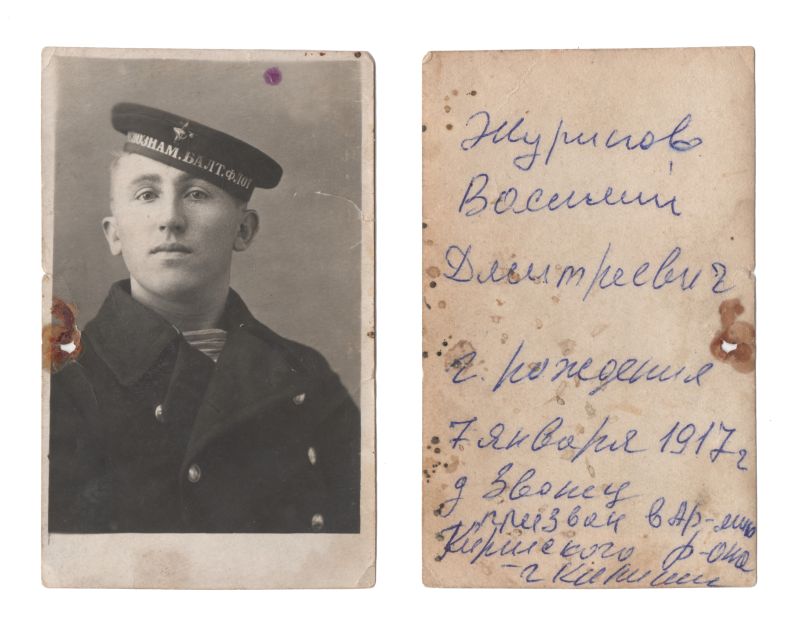 НОЗНАМ.БАЛТ.ФЛОТ
Журипов
Василий
Дмитреевич
г. рождения
7 января 1917 г
д Звонец
призван в Ар-мию
Киришского р-она
-г Кириши